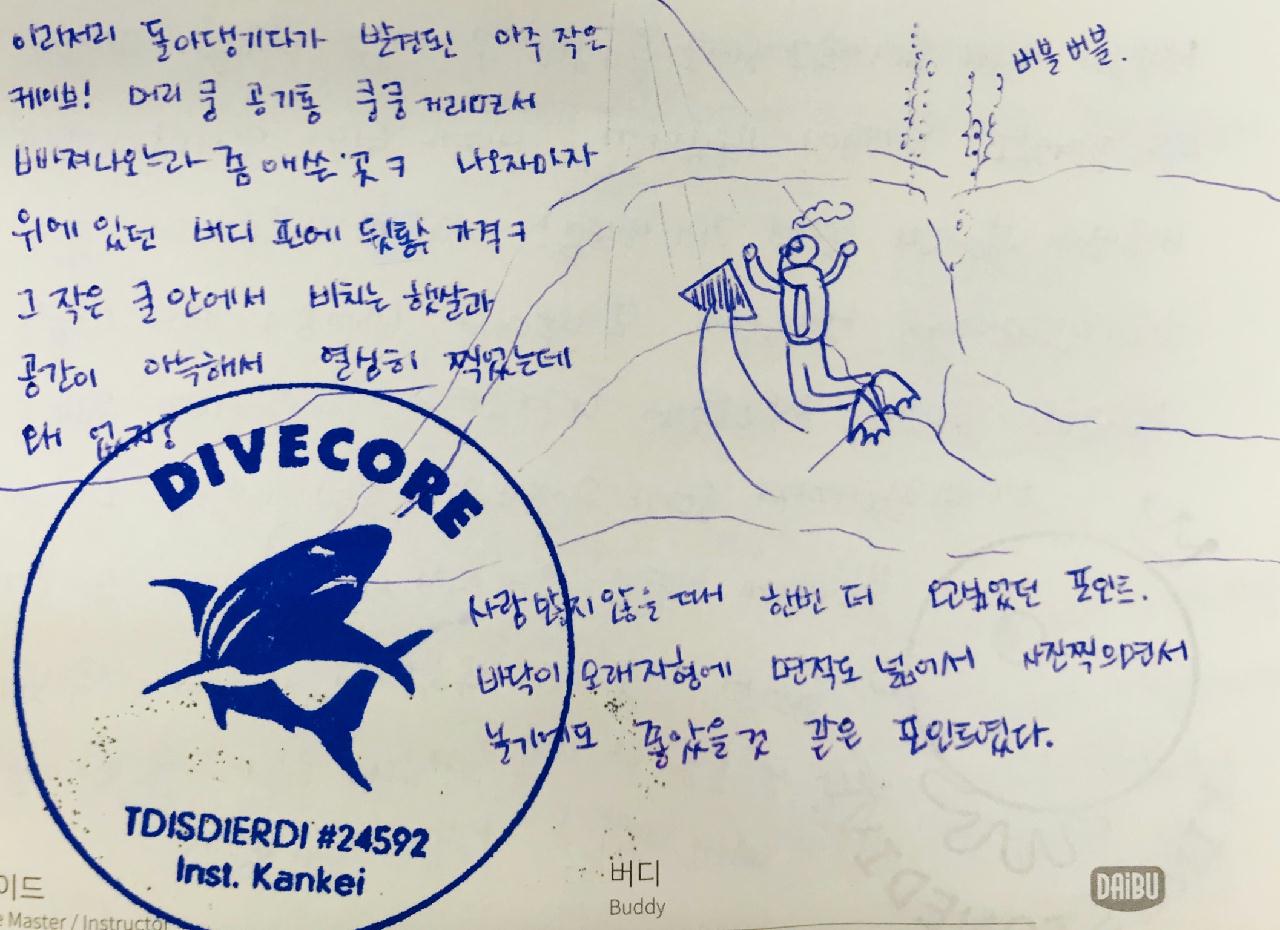 이리저리 돌아댕기다가 발견된 아주 작은
케이브! 머리 쿵 공기통 쿵쿵 거리면서
빠져나오느라 좀 애쓴 곳ㅋ 나오자마자
위에 있던 버디 핀에 뒷통수 가격ㅋ
그 작은 굴 안에서 비치는 햇살과
공간이 아늑해서 열심히 찍었는데
왜 없지?
버블버블.
사람 많지 않을 때 한번 더 오고싶었던 포인트.
바닥이 모래지형에 면적도 넓어서 사진찍으면서
놀기에도 좋았을 것 같은 포인트였다.
DIVECORE
TDISDIERDI #24592
Inst. Kankei
이드
e Master / Instructor
버디
Buddy
DAiBU